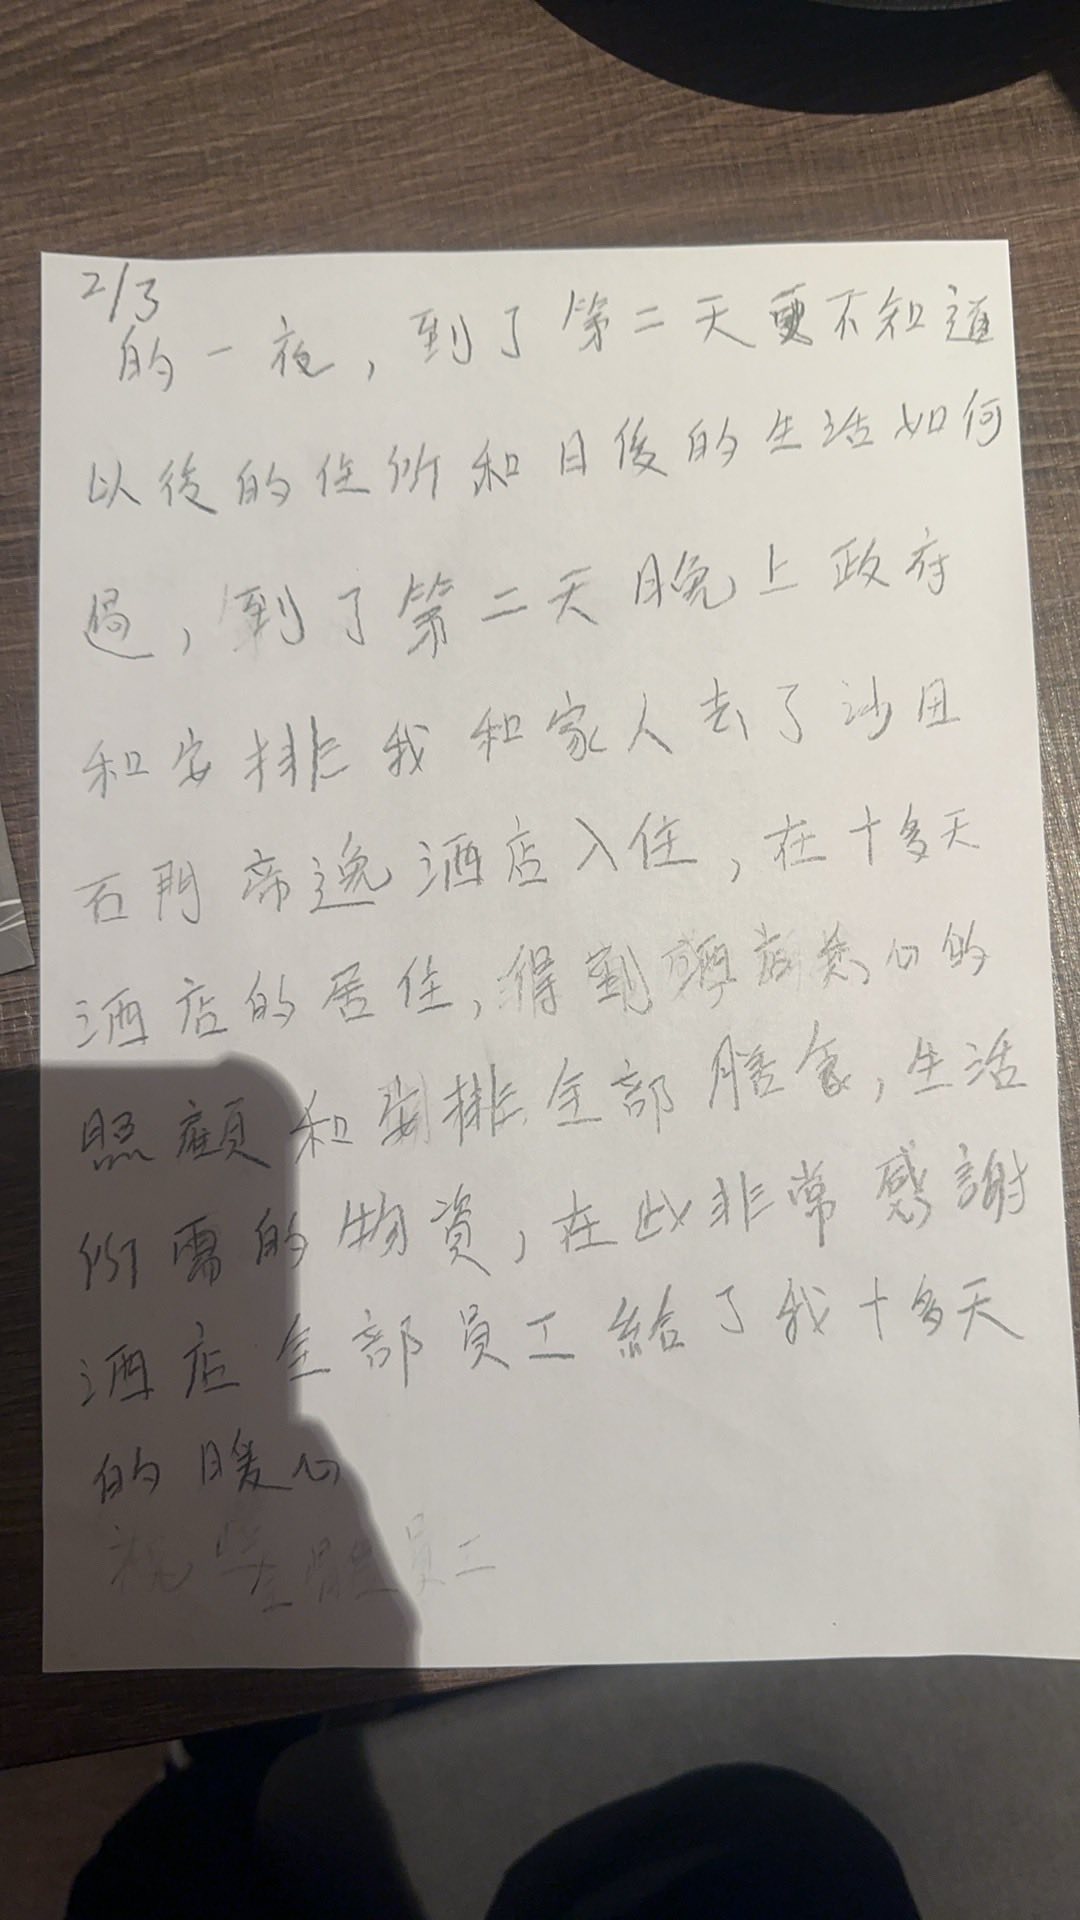 2/3
的一夜，到了第二天更不知道
以後的住所和日後的生活如何
過，到了第二天晚上政府
和安排我和家人去了沙田
石門帝逸酒店入住，在十多天
酒店的居住，得到酒店悉心的
照顧和安排全部膳食，生活
所需的物資，在此非常感謝
酒店全部員工給了我十多天
的暖心
祝 全體員工